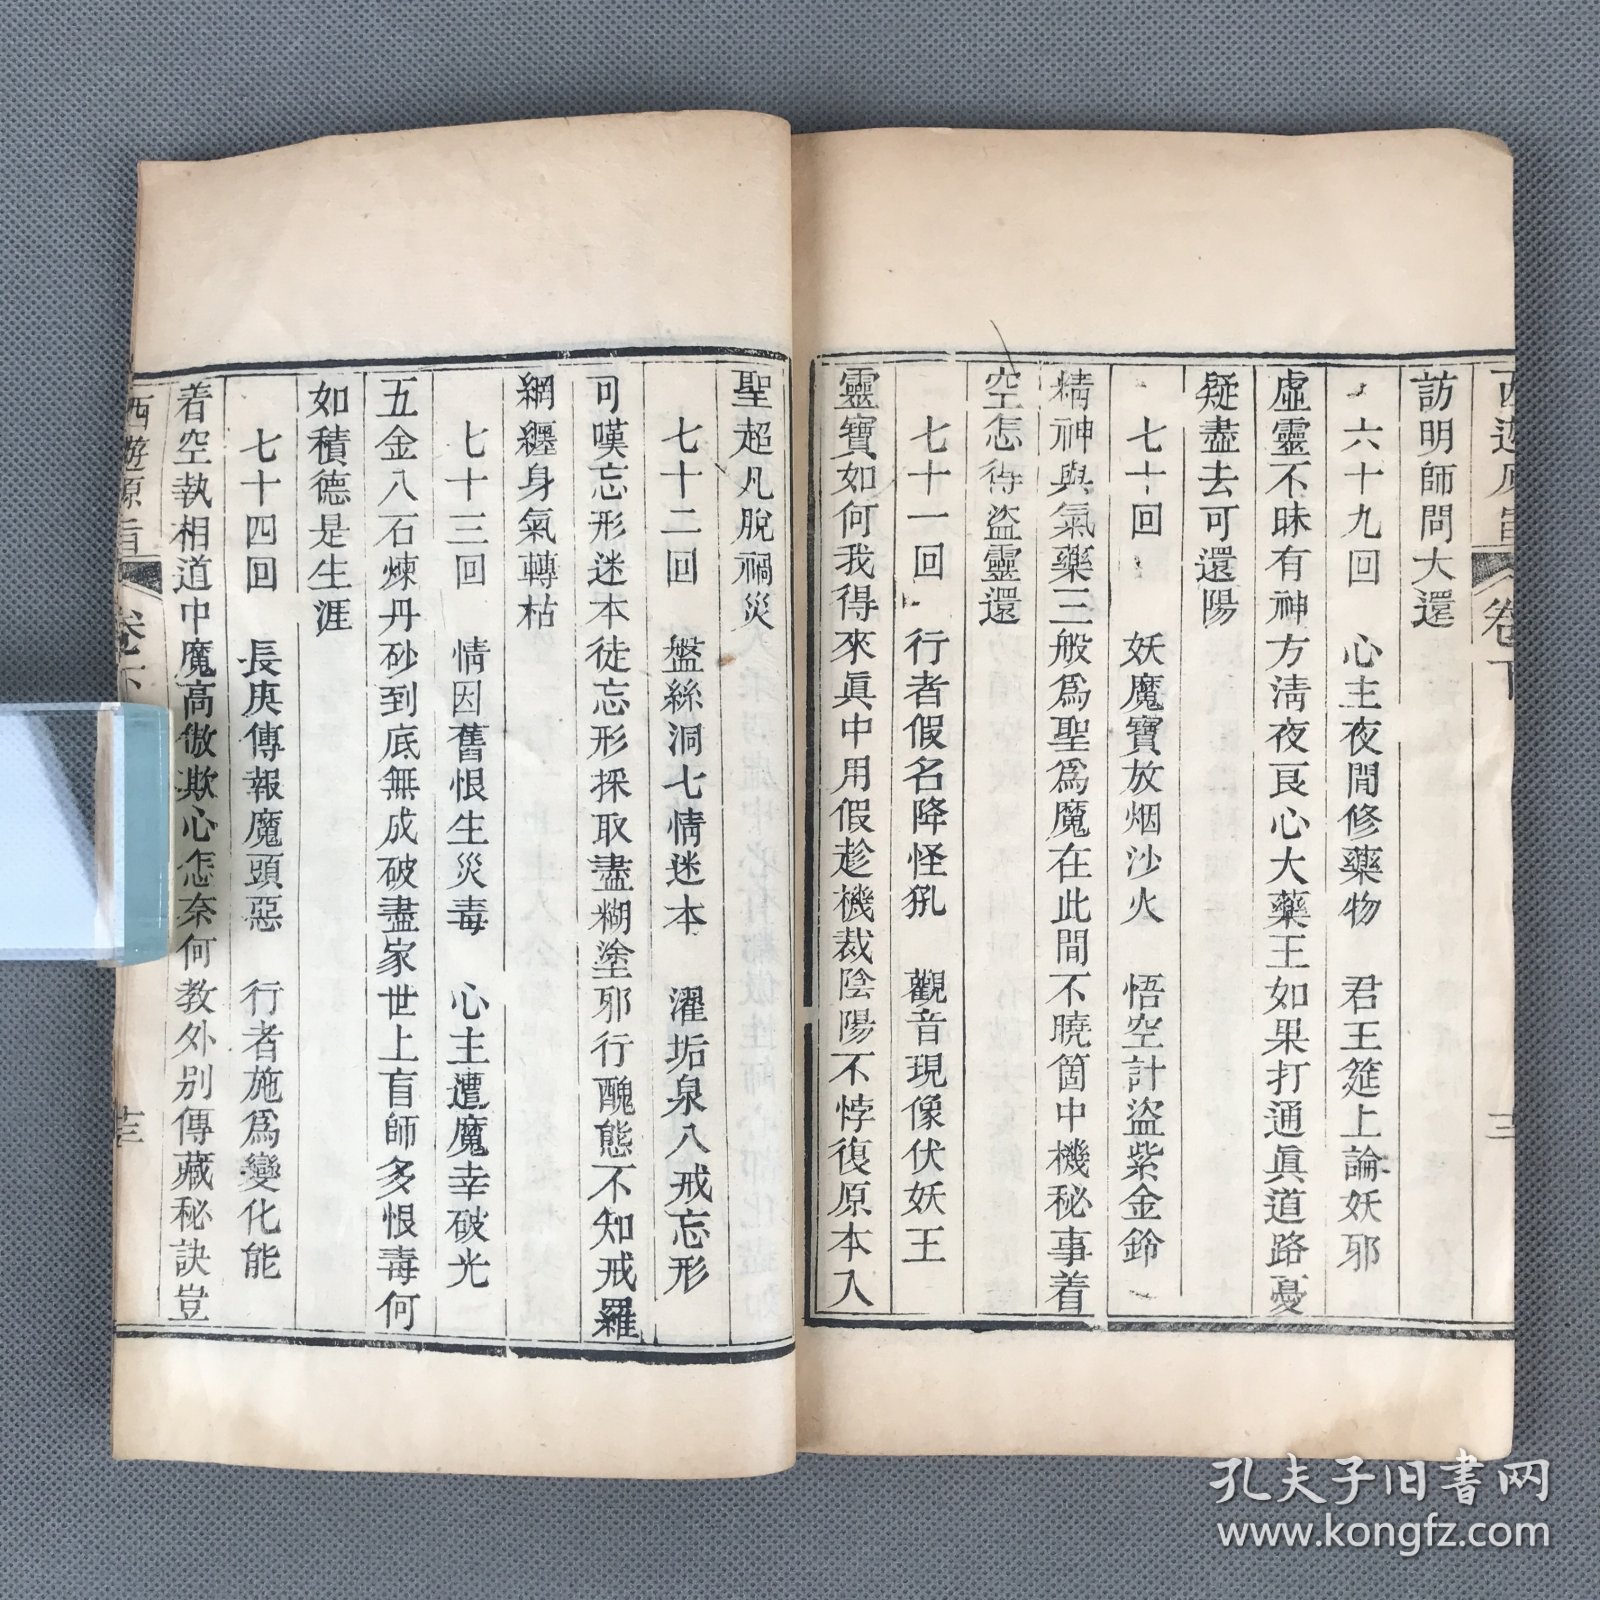 西遊原旨 卷下 三
訪明師問大還
六十九回 心主夜間修藥物 君王筵上論妖邪
虛靈不昧有神方淸夜良心大藥王如果打通眞道路憂
疑盡去可還陽
七十回 妖魔寶放烟沙火 悟空計盜紫金鈴
精神與氣藥三般爲聖爲魔在此間不曉箇中機秘事着
空怎得盜靈還
七十一回 行者假名降怪犼 觀音現像伏妖王
靈寶如何我得來眞中用假趁機裁陰陽不悖復原本入
聖超凡脫禍災
七十二回 盤絲洞七情迷本 濯垢泉八戒忘形
可嘆忘形迷本徒忘形採取盡糊塗邪行醜態不知戒羅
網纏身氣轉枯
七十三回 情因舊恨生災毒 心主遭魔幸破光
五金八石煉丹砂到底無成破盡家世上盲師多恨毒何
如積德是生涯
七十四回 長庚傳報魔頭惡 行者施爲變化能
着空執相道中魔高傲欺心怎奈何教外別傳藏秘訣豈
西遊原旨 卷下
孔夫子旧书网
www.kongfz.com